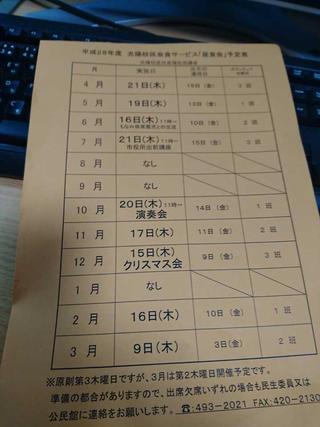 平成28年度 光陽校区会食サービス「昼食会」予定表
月 実施日
4 月 21日(木) 15日(金) 2 班
5 月 19日(木) 13日(金) 1 班
6 月 16日(木) 11時〜 3 班
7 月 21日(木) 11時〜 15日(金) 3 班
市役所出前講座
8 月 なし
9 月 なし
10 月 20日(木) 11時〜 14日(金) 1 班
演奏会
11 月 17日(木) 11日(金) 2 班
12 月 15日(木) 9日(金) 3 班
クリスマス会
1 月 なし
2 月 16日(木) 10日(金) 1 班
3 月 9日(木) 3日(金) 2 班
※原則第3木曜日ですが、3月は第2木曜日開催予定です。
準備の都合がありますので、出席欠席いずれの場合も民生委員又は
公民館に連絡をお願いします。 ☎:493-2021 FAX:420-2130